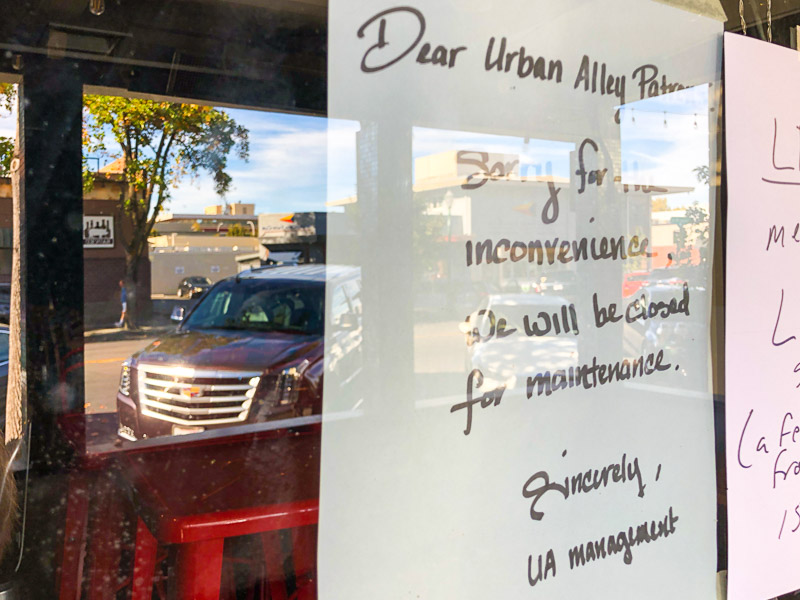 Dear Urban Alley
Sorry for the
inconvenience.
We will be closed
for maintenance.
Sincerely,
UA management
(a fe